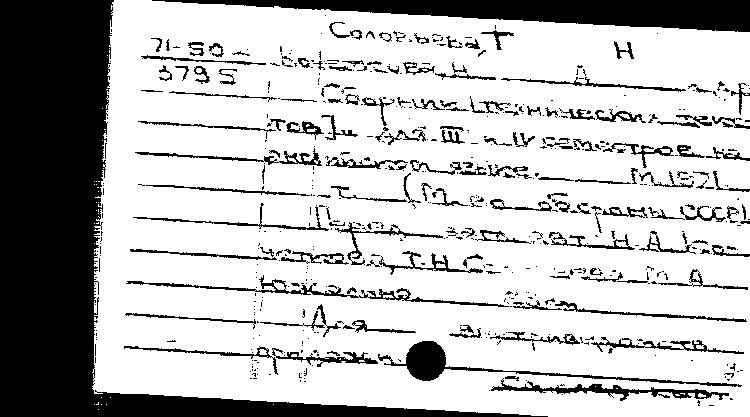 Соловьева, Т Н
71-50-
3795
Кочеткова, Н. А. и др
Сборник [технических текс-
тов] для III и IV семестров на
английском языке. М. 1971.
т. (М-во обороны СССР).
Перед загл. авт. Н. А. Ко-
четкова, Т. Н. М. А.
Южалина.
Для внутриведомств.
продажи.
См. след. карт.